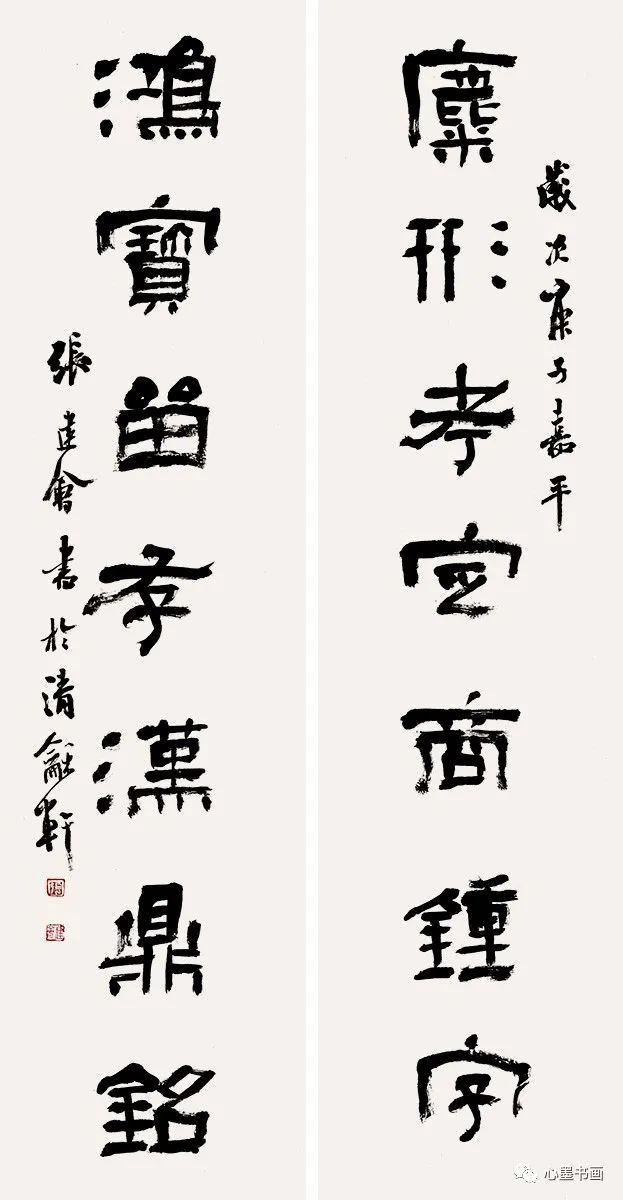 歲次庚子嘉平
麋形考定商鍾字
鴻寶留存漢鼎銘
張建會書於清龢軒
心墨书画